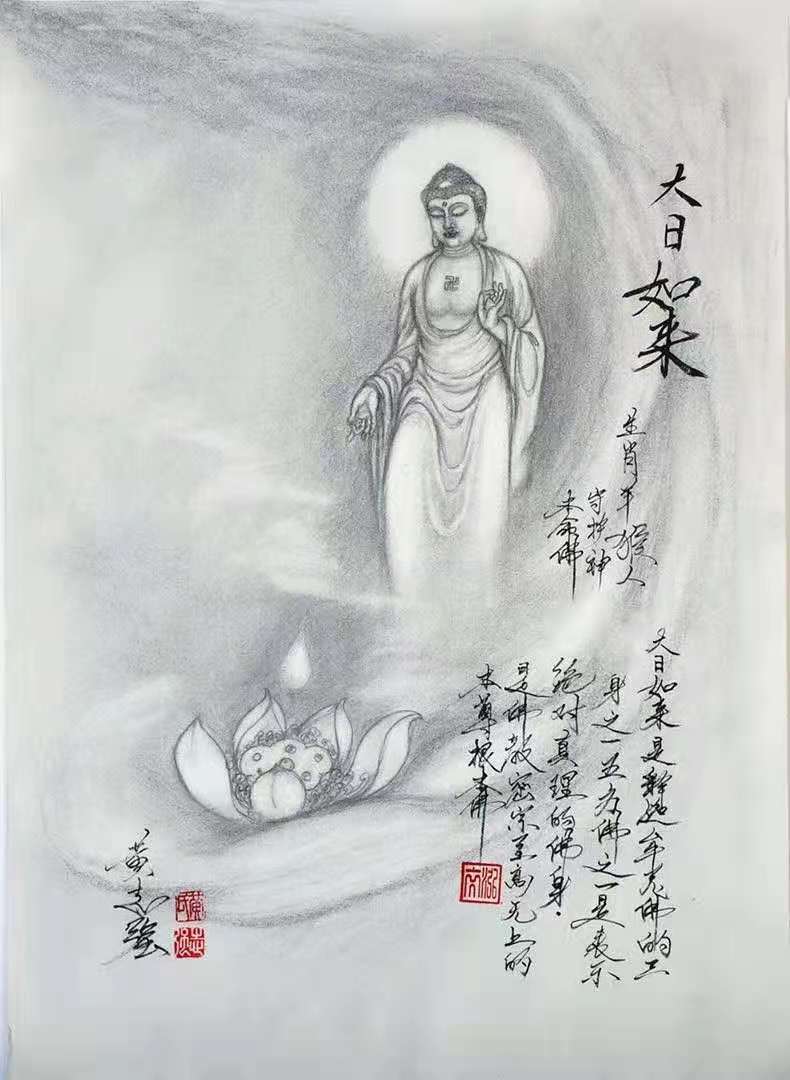 大日如来
生肖羊猴人
守护神
本命佛
大日如来是释迦牟尼佛的三
身之一五方佛之一是表示
绝对真理的佛身.
是佛教密宗至高无上的
本尊根本佛
黄志强